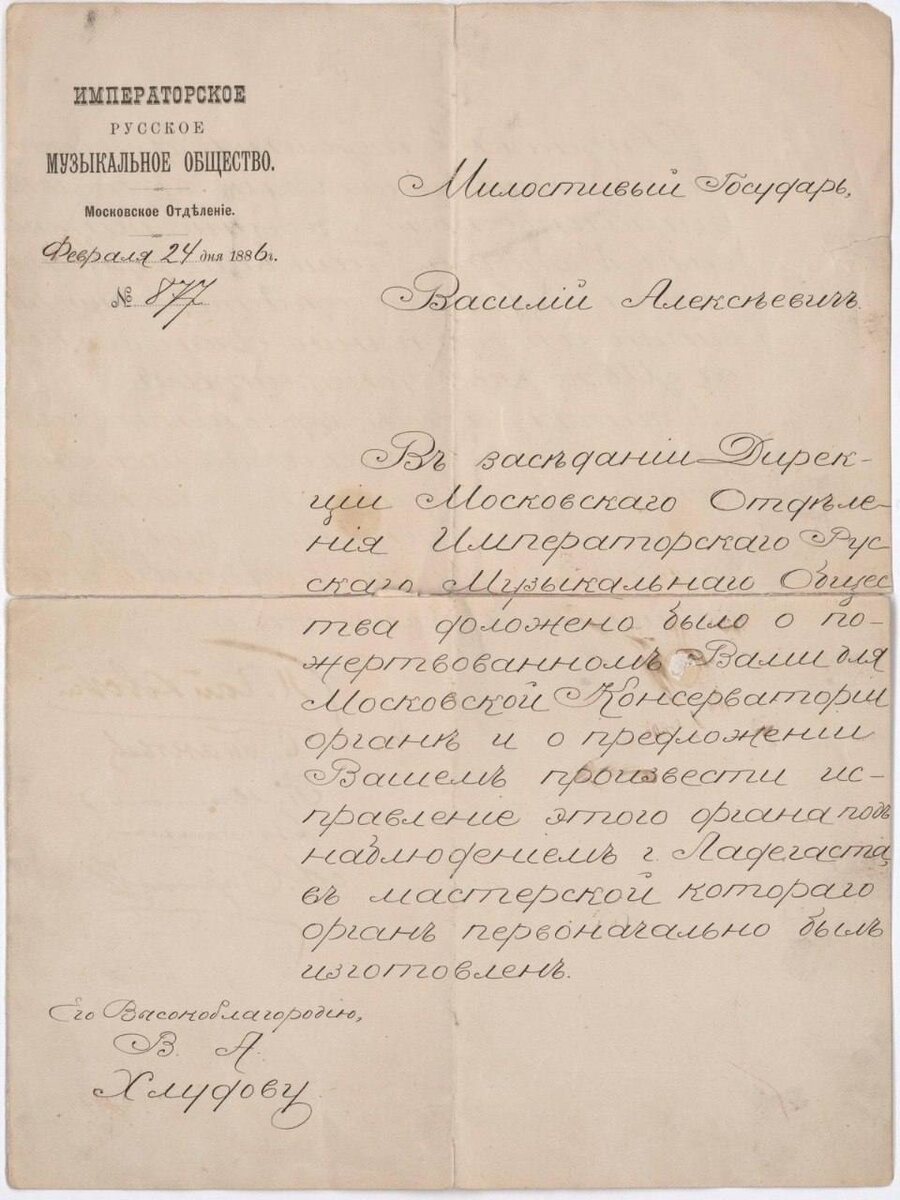 ИМПЕРАТОРСКОЕ
РУССКОЕ
МУЗЫКАЛЬНОЕ ОБЩЕСТВО.
Московское Отдѣленіе.
Февраля 24 дня 1886 г.
№ 877
Милостивый Государь,
Василій Алексѣевичъ.
Въ засѣданіи Дирек-
ціи Московскаго Отдѣле-
нія Императорскаго Рус
скаго Музыкальнаго Общес
тва доложено было о по-
жертвованномъ Вами для
Московской Консерваторіи
органѣ и о предложеніи
Вашемъ произвести ис-
правленіе этого органа подъ
наблюденіемъ г. Ладегаста,
въ мастерской котораго
органъ первоначально былъ
изготовленъ.
Его Высокоблагородію,
В. А.
Хлудову